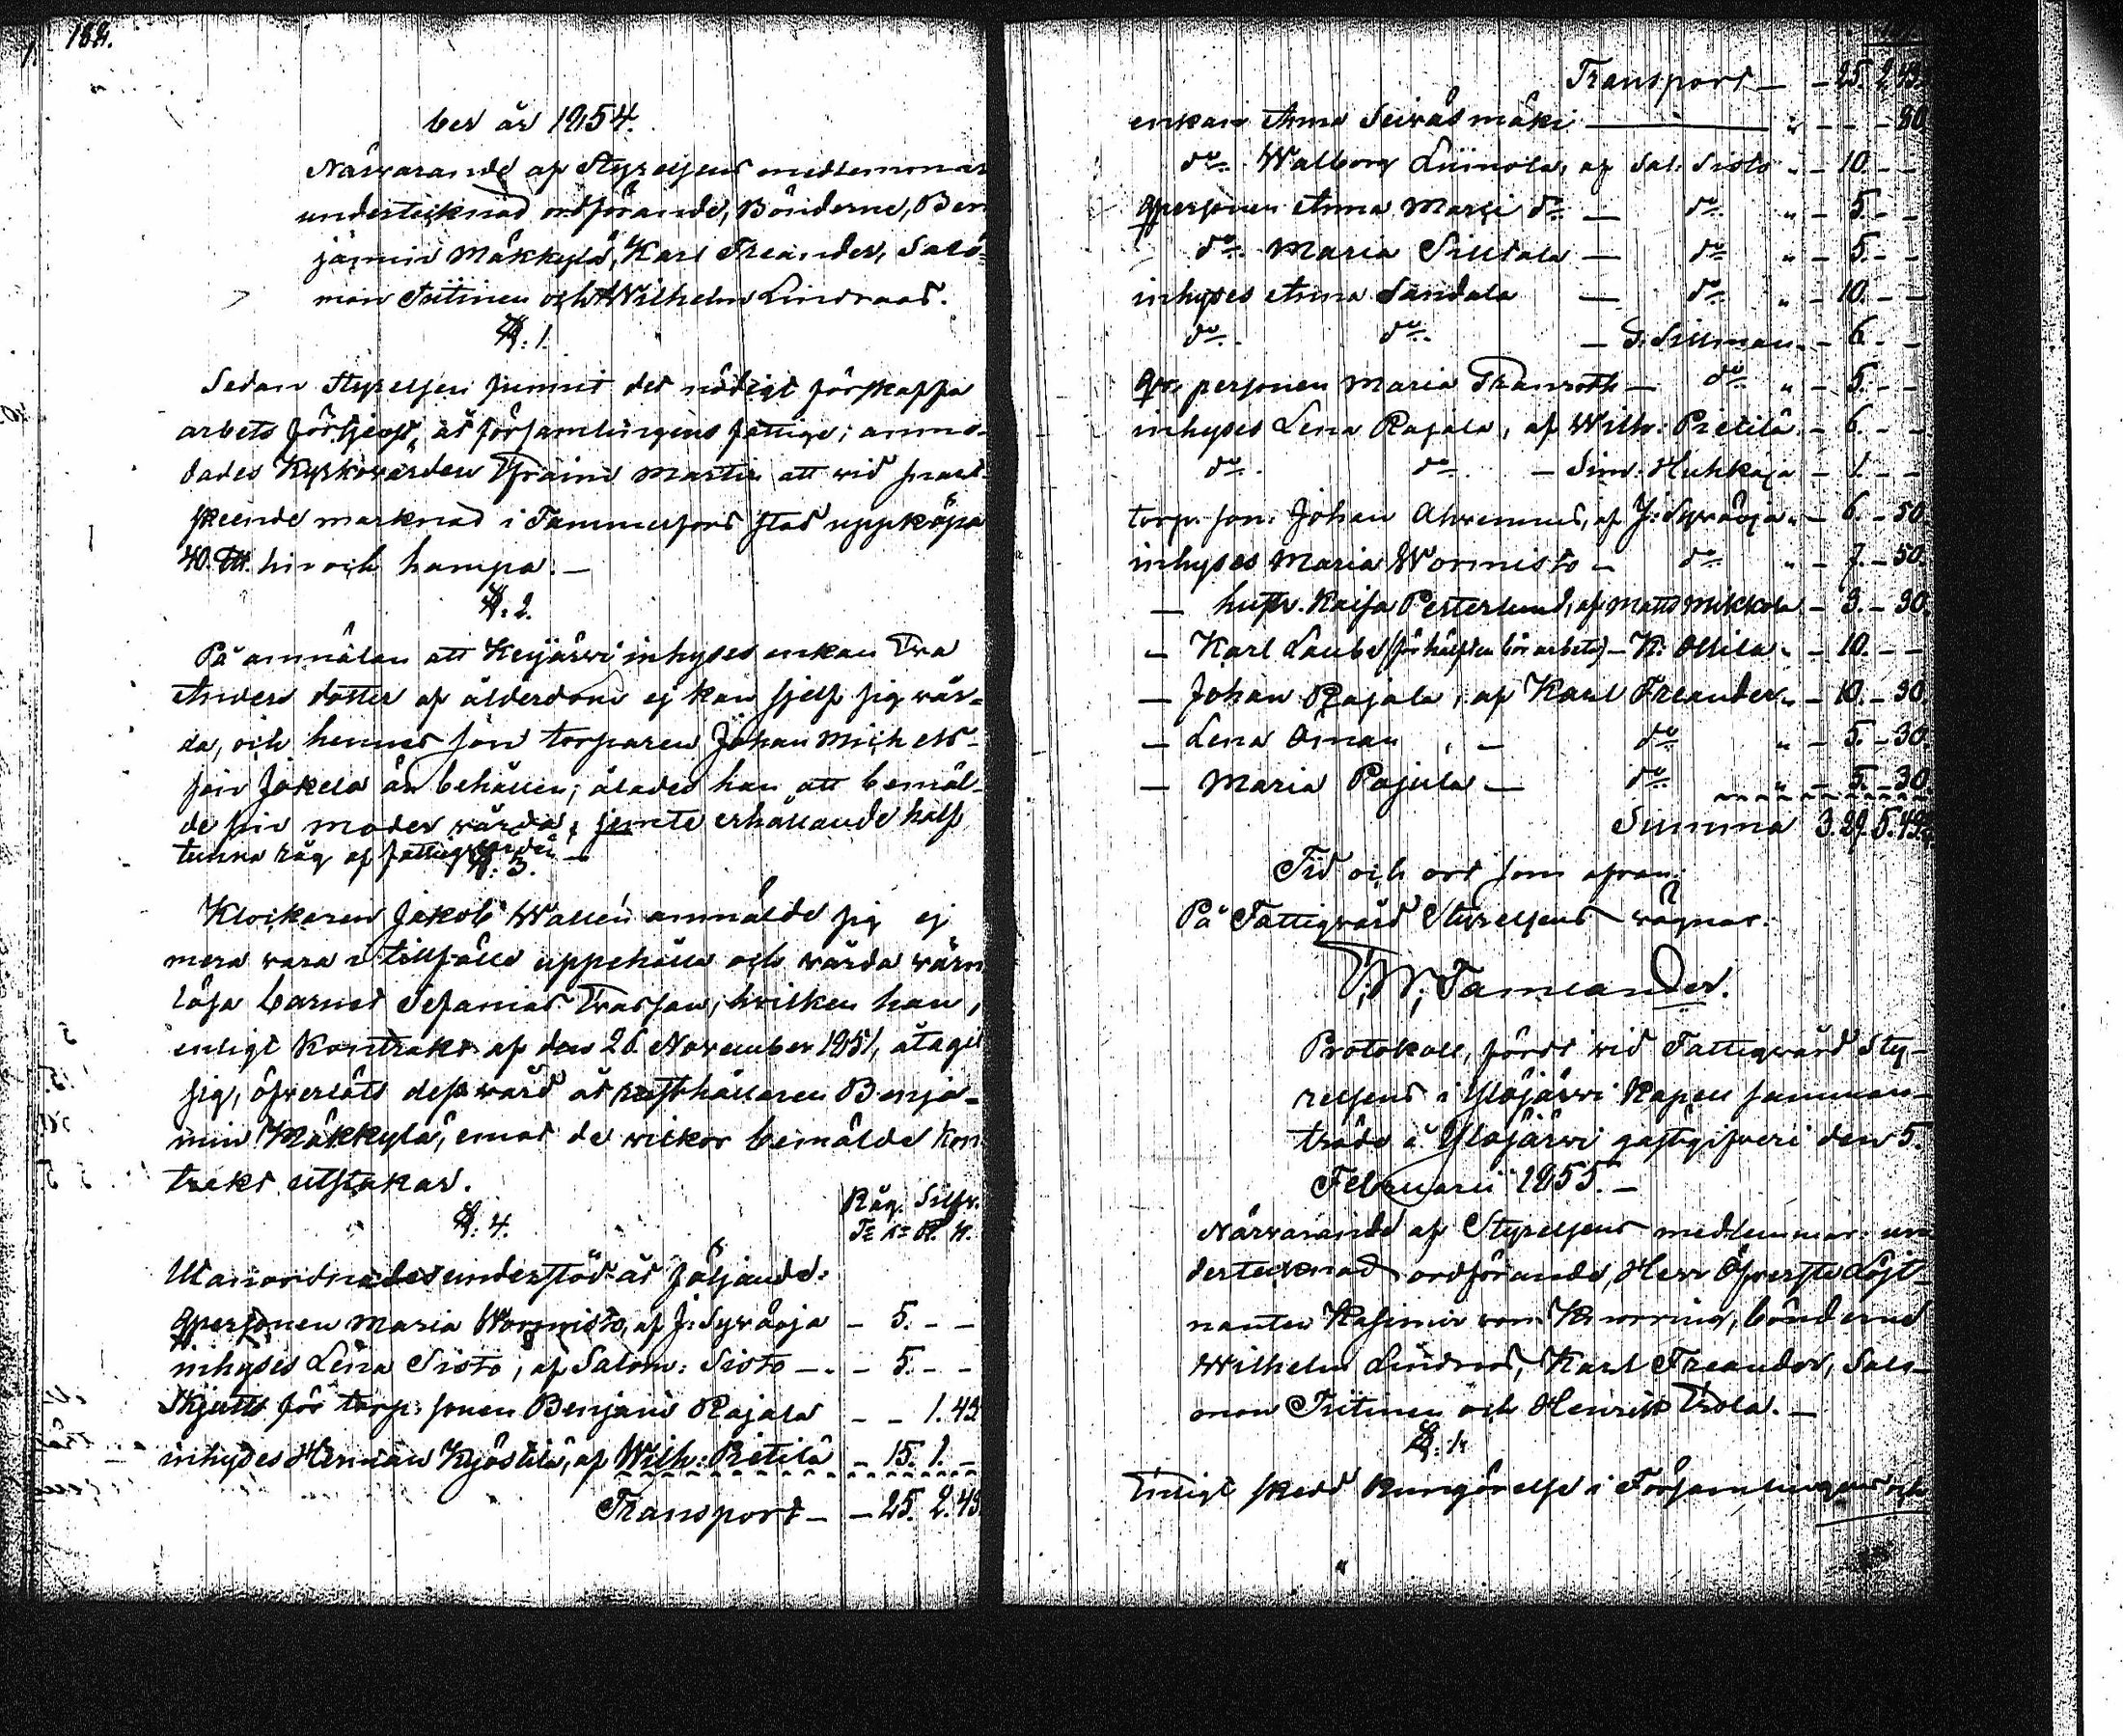 184.
ber år 1854.
Närvarande af Styrelsens medlemmar
undertecknad ordförande, Bönderne, Ben
jamin Mäkkylä, Karl Freander, Salo-
mon Tiitinen och Wilhelm Lindroos.
§. 1.
Sedan Styrelsen funnit det nödigt förskaffa
arbets förtjenst åt församlingens fattige; anmo-
dades Kyrkovärden Efraim Martin att vid
skeende marknad i Tammerfors stad uppköpa
40 ℔. lin och hampa. —
§. 2.
På anmälan att Keijärvi inhyses enkan Eva
Anders dotter af ålderdom ej kan sjelf sig vår-
da, och hennes son torparen Johan Michels-
son Jokela är behållen; ålades han att bemäl-
de sin moder vårda, jemte erhållande half
tunna råg af
§. 3.
Klockaren Jakob Wallén anmälde sig ej
mera vara i tillfälle uppehålla och vårda värn
lösa barnet Sefanias Evasson, hvilken han,
enligt Kontrakt af den 26 November 1851, åtagit
sig, öfverläts dess vård åt rusthållaren Benja-
min Mäkkylä, emot de vilkor bemälde Kon
trakt utstakar.
Råg. Silfv.
§. 4.
Tr kr R. K.
Utanordnades understöd åt följande:
qpersonen Maria Wormisto, af J: Syväoja - 5. - -
inhyses Lena Sisto, af Salom: Sisto - - 5. - -
Skjuts för torp: sonen Benjam Rajala - - 1. 43
inhyses Herman Kyöstilä, af Wilh: Pietilä - 15. 1. -
Transport - - 25. 2. 43.
Transport - - 25. 2 43.
enkan Anna Seiväsmäki - - - 80
do Walborg Liinola, af Sal: Sisto - 10. - -
qpersonen Anna Mari do - do " - 5. - -
do Maria Silldala - do " - 5. - -
inhyses Anna Sandala - do " - 10. - -
do do - G. Sillman - 6. - -
qv: personen Maria Granroth - do " - 5. - -
inhyses Lena Rajala, af Wilh: Pietilä - 6. - -
do do - Sim: Huhkaja - 1. - -
torp. son: Johan Ahrenius, af J: Syväoja - 6. - 50
inhyses Maria Wormisto - do " - 7. - 50.
- hustr. Kaisa Pesterlund, af Matts Mikkola - 3. - 30.
- Karl Laube (för hälften bör arbeta) - K: Ollila - 10. - -
- Johan Rajala, af Karl Freander - 10. - 30.
- Lena Öman, - do " - 5. - 30.
- Maria Pajula - do " - 5. - 30
Summa 3. 29. 5. 43
Tid och ort som ofvan;
På Fattigvård Styrelsens vägnar.
F; W; Tamlander.
Protokoll, fördt vid Fattigvård Sty-
relsens i Ylöjärvi Kapell samman-
träde å Ylöjärvi gästgifveri den 5.
Februarii 1855. —
Närvarande af Styrelsens medlemmar: un
dertecknad ordförande, Herr Öfverste Löjt-
nanten Kasimir von Knorring, bönderne
Wilhelm Lindroos, Karl Freander, Salo-
mon Tiitinen och Henrik Erola. —
§. 1.
Enligt skedd kungörelse i Församlingens och